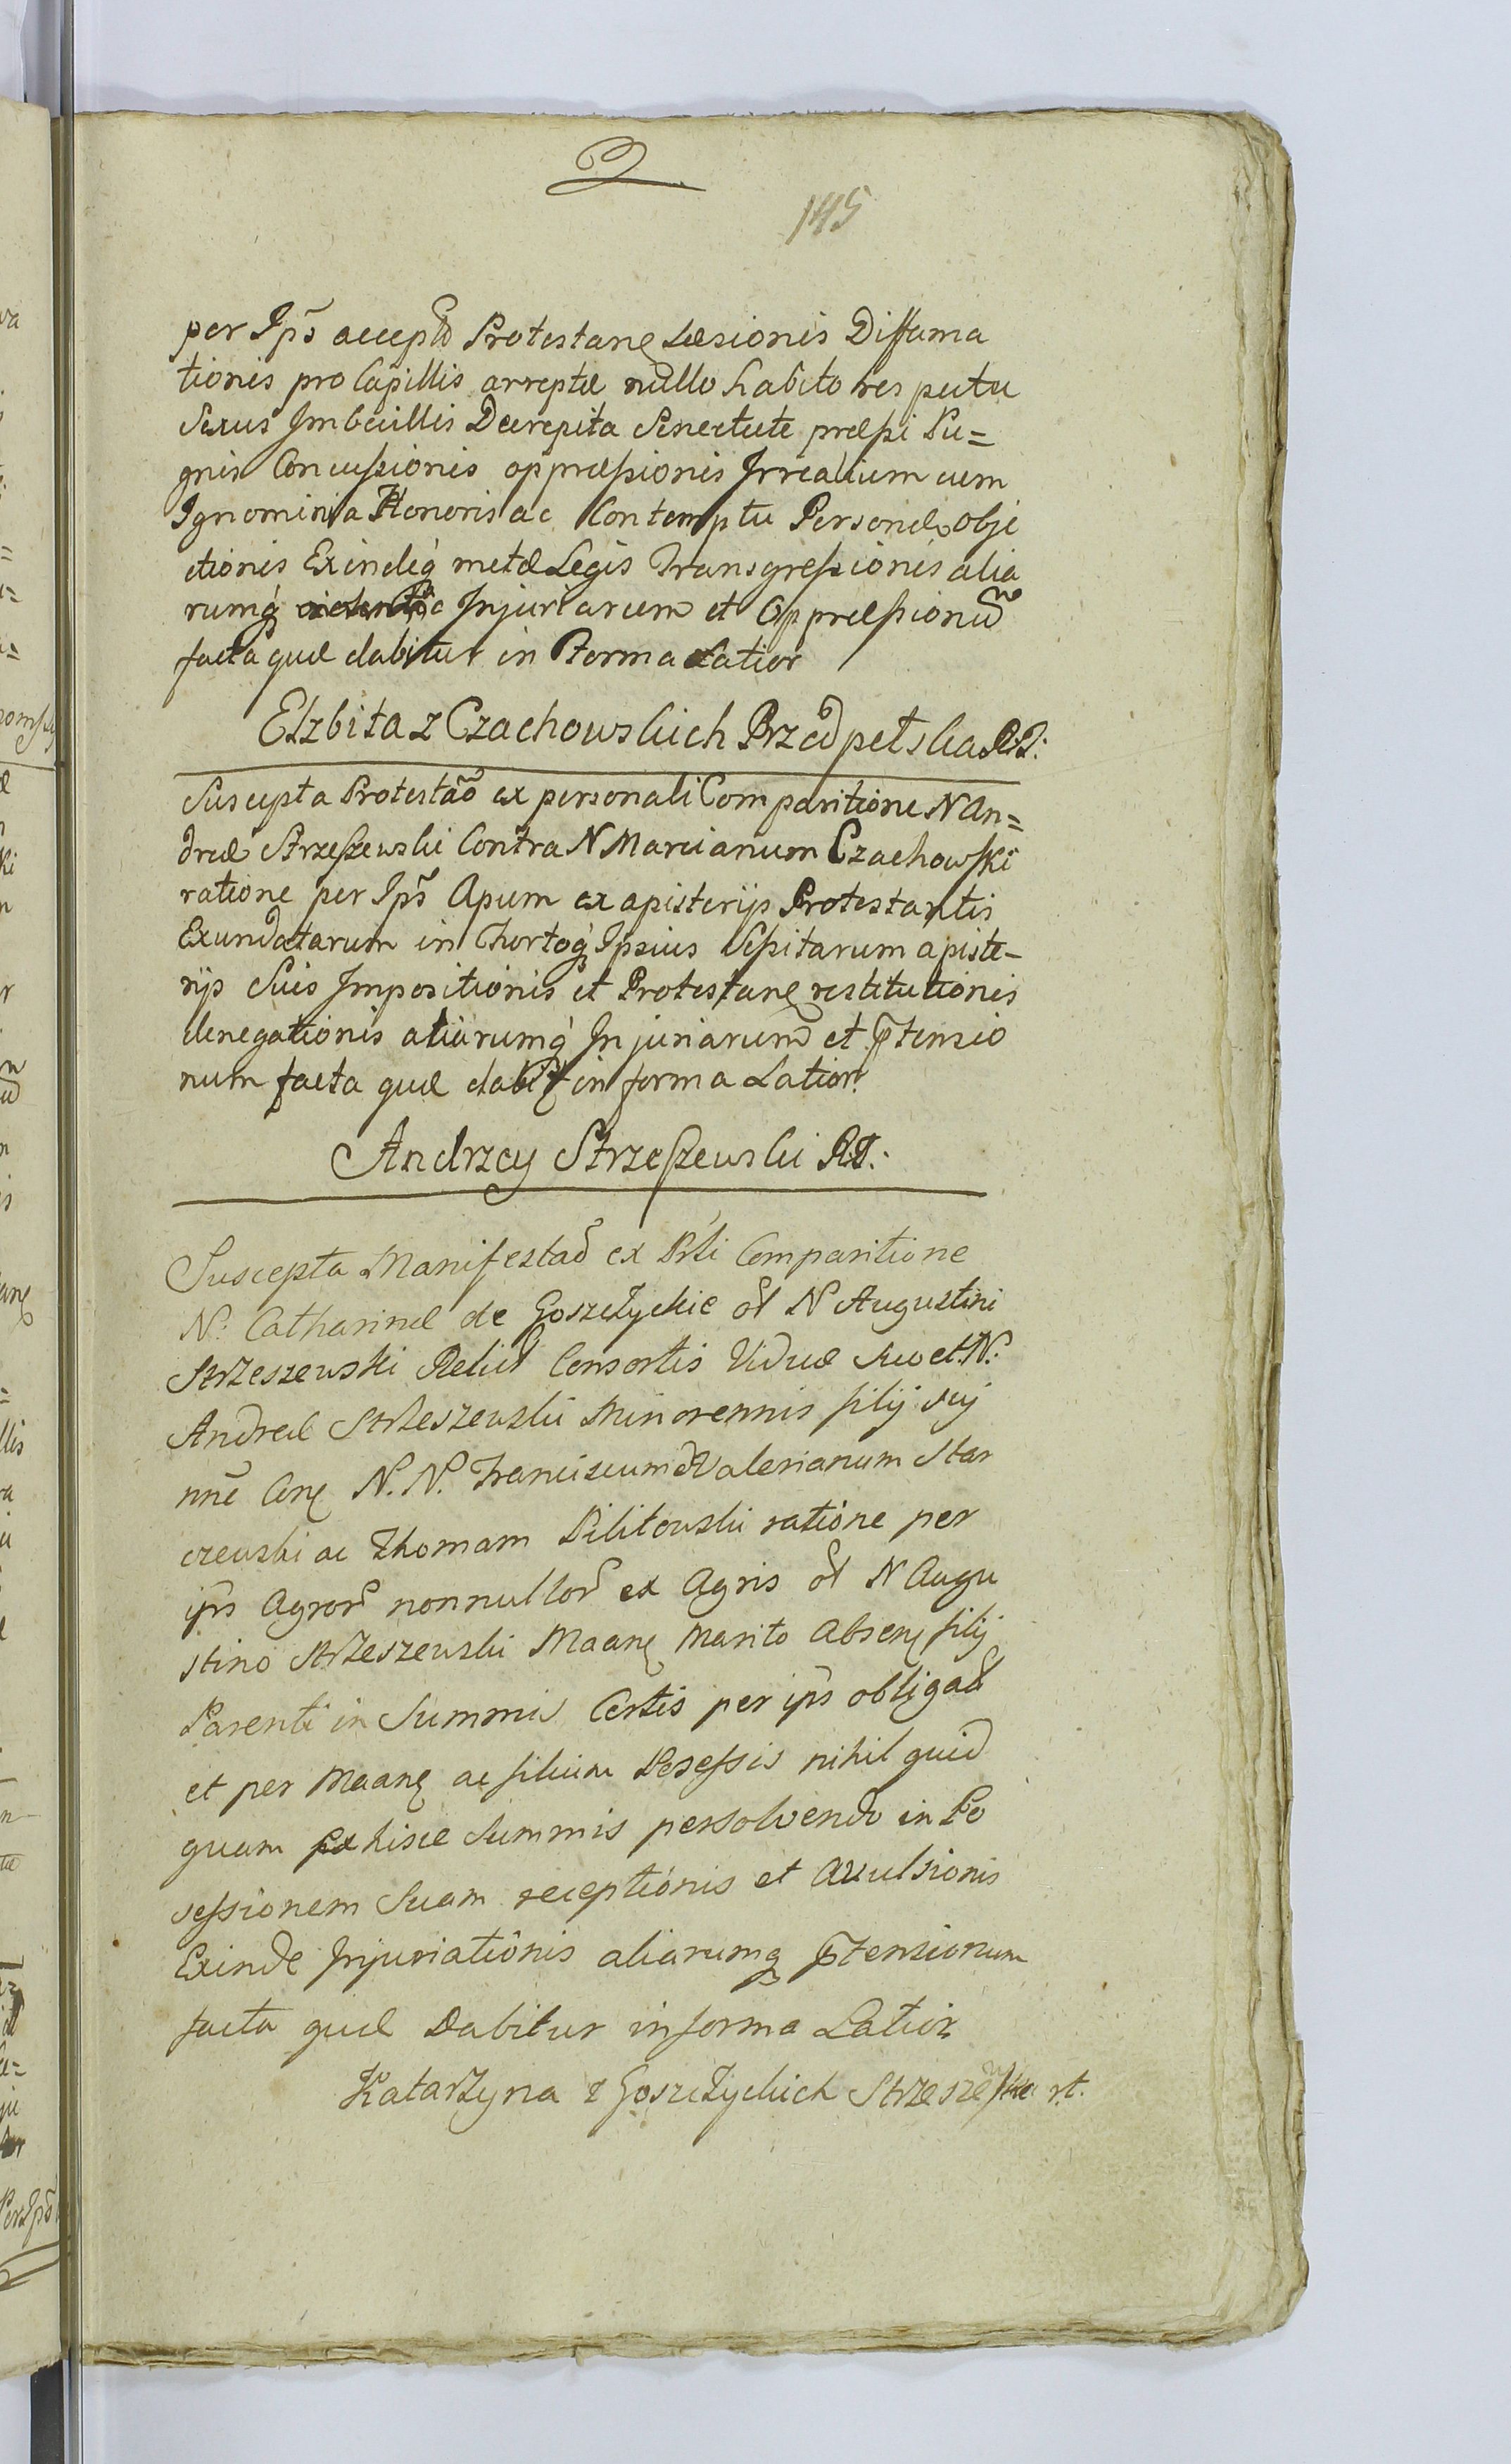 2
145
per Ips̃ accepto Protestanę Læsionis Diffama
tionis pro Capillis arreptæ nullo habito respectu
Sexus Imbecillis Decrepita Senectute præssi Pu=
gnis Concussionis oppræssionis Irrealium cum
Ignominia Honoris ac Contemptu Personæ obje
ctionis Exindeq́ metæ Legis Transgressionis alia
rumq́ Injuriarum et Oppræssionũ
facta quæ dabitur in Forma Latior
Elzbita z Czachowskich Przedpełska R.T.
Suscepta Protestão ex personali Comparitione N An=
dreæ Strzeszewski Contra N Marcianum Czachowski
ratione per Ips̃ Apum ex apisterijs Protestantis
Exundatarum in Thortoq́ Ipsius Sessitarum apiste-
rijs Suis Impositionis et Protestanę restitutionis
denegationis aliarumq́ Injuriarum et p̃tensio
num facta quæ dabit in forma Latiori
Andrzey Strzeszewski R.T.
Suscepta Manifestaõ ex Prli Comparitione
N: Catharinæ de Goszczyckie ol N Augustini
Strzeszewski Relict Consortis Viduæ suo et N:
Andreæ Strzeszewski Minorennis filij suj
nnẽ Cenę N. N. Franciscum et Valerianum Star
czewski ac Thomam Pilitowski ratione per
ips Agror nonnullor ex Agris ol N Augu
stino Strzeszewski Maanę Marito Absenę filij
Parenti in Summis Certis per ips obligad
et per Maanę ac filium Possessis nihil quid
quam ex hisce Summis persolvendo in Po
sessionem Suam receptionis et avulsionis
Exinde Injuriationis aliarumq p̃tensionum
facta quæ Dabitur in forma Latior
Katarzyna z Goszczyckich Strzeszewska rt.